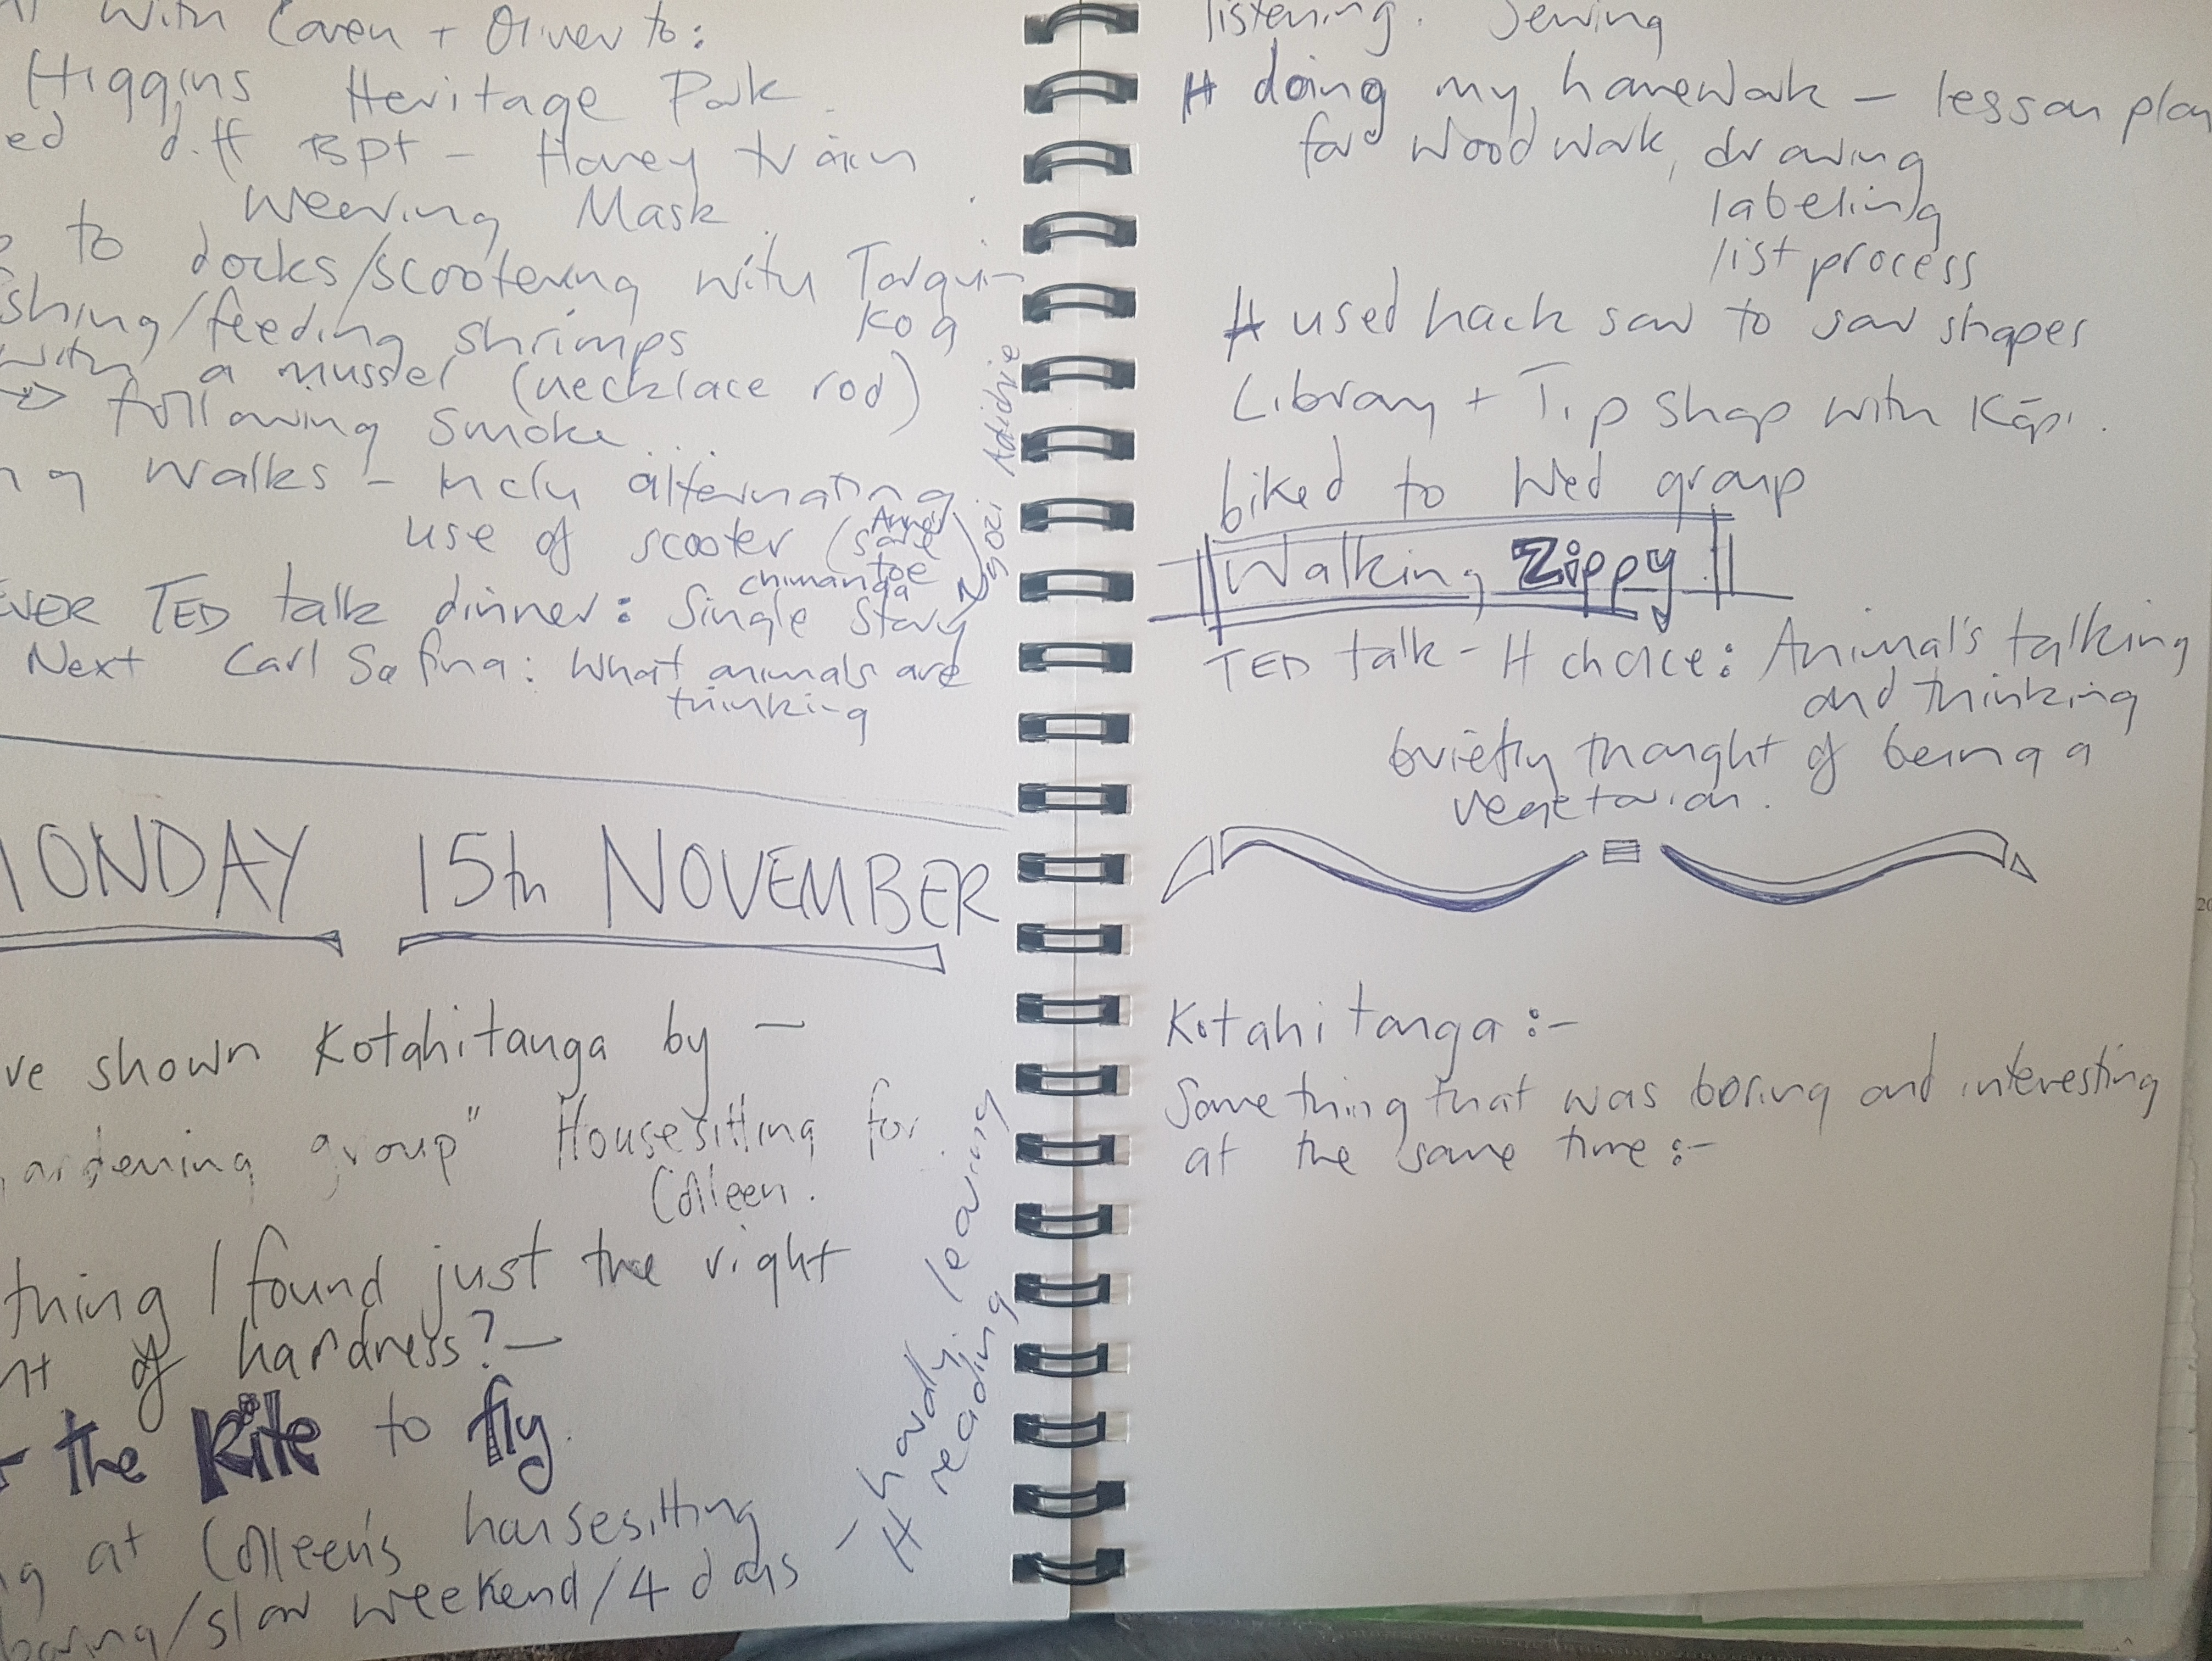 with Caren + Oliver to:
Higgins Heritage Park
ed diff BPt - Harvey train
wearing Mask
to docks/scootering with Tarqui-
shing/feeding shrimps Koa
with a mussel (necklace rod)
following smoke
ng walks - inclu alternating
use of scooter (sore toe)
EVER TED talk dinner: Single Story
chimanda Ngozi Adichie
Next Carl Safina: What animals are
thinking
MONDAY 15th NOVEMBER
ve shown Kotahitanga by -
ardening group" Housesitting for
Colleen.
thing I found just the right
nt of hardness? -
the Kite to fly.
ng at Colleen's housesitting
boring/slow weekend/4 days
- H hardly learning
reading
listening. Sewing
H doing my homework - lesson plan
for woodwork, drawing
labeling
list process
H used hack saw to saw shapes
Library + Tip Shop with Kāpi.
biked to Wed group
Walking Zippy
TED talk - H choice: Animal's talking
and thinking
briefly thought of being a
vegetarian.
Kotahitanga :-
Something that was boring and interesting
at the same time :-